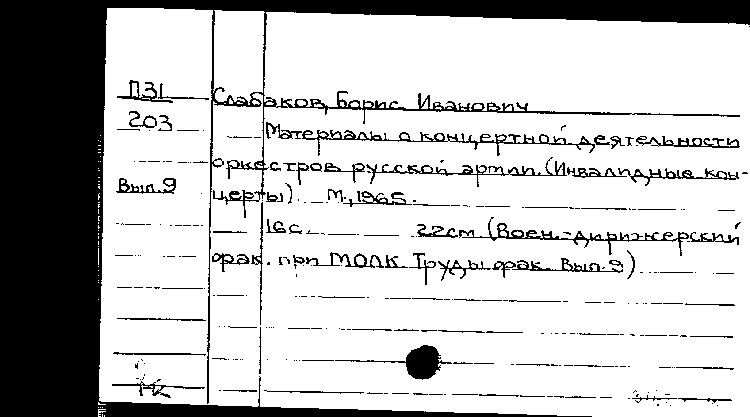 П31
203
Вып.9
Слабаков, Борис Иванович
Материалы о концертной деятельности
оркестров русской армии. (Инвалидные кон-
церты). М., 1965.
16 с. 22 см. (Воен.-дирижерский
фак. при МОЛК. Труды фак. Вып. 9)